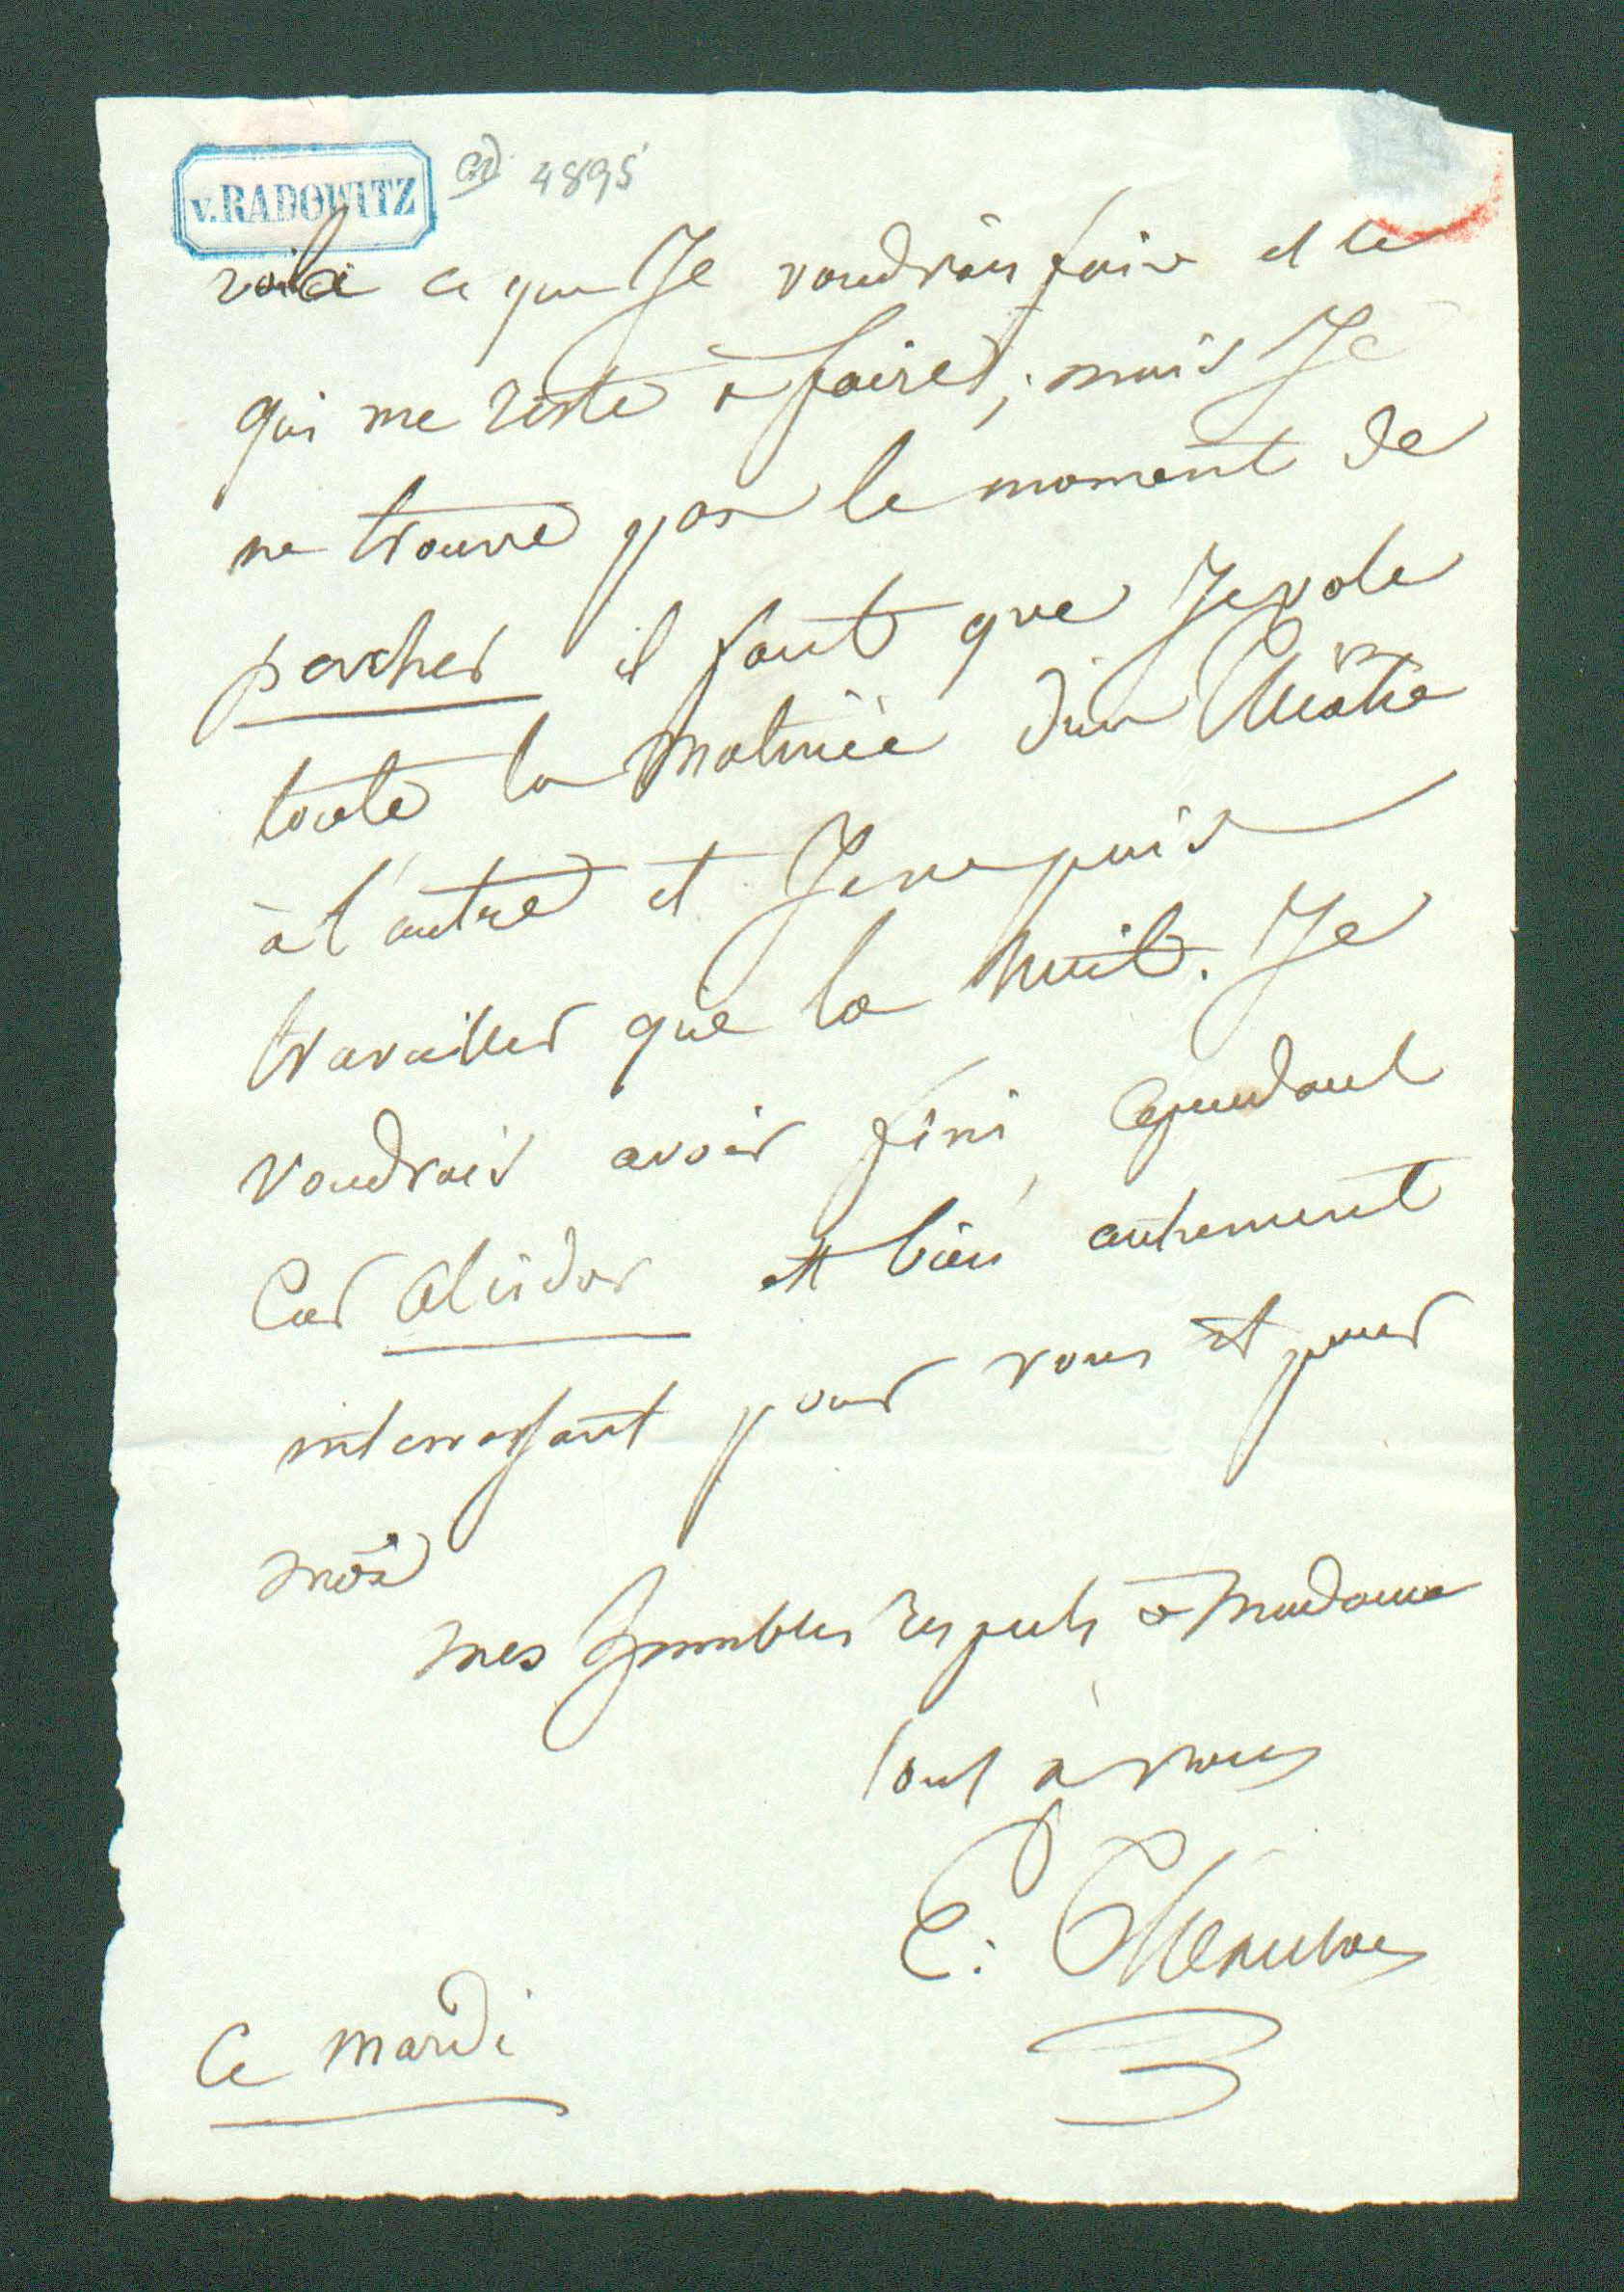 v. RADOWITZ
ad 4895
voila ce que Je voudrais faire et ce
qui me reste à faire; mais Je
ne trouve pas le moment de
percher il faut que Je vole
toute la matinée d'un théatre
à l'autre et Je ne puis
travailler que la nuit. Je
voudrais avoir fini, cependant
Car Alcidor est bien autrement
interressant pour vous et pour
moi
mes humbles respects à Madame
tout à vous
E. Théaulon
Ce mardi